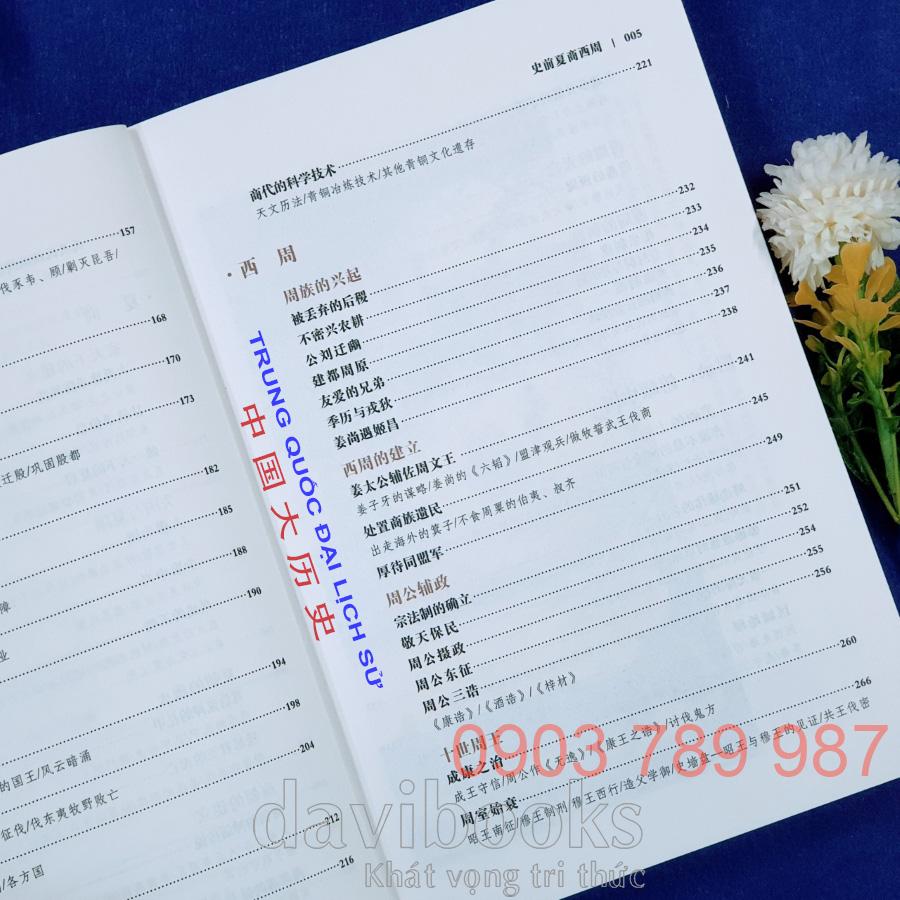 157
伐豕韦、顾/剿灭昆吾/
168
170
173
迁殷/巩固殷都
182
185
188
障
190
业
194
198
的国王/风云暗涌
204
征伐/伐东夷牧野败亡
212
/各方国
216
史前夏商西周 | 005
商代的科学技术 221
天文历法/青铜冶炼技术/其他青铜文化遗存
· 西 周
周族的兴起
被丢弃的后稷 232
不密兴农耕 233
公刘迁豳 234
建都周原 235
友爱的兄弟 236
季历与戎狄 237
姜尚遇姬昌 238
西周的建立
姜太公辅佐周文王 241
姜子牙的谋略/姜尚的《六韬》/盟津观兵/做牧誓武王伐商
处置商族遗民 245
出走海外的箕子/不食周粟的伯夷、叔齐
厚待同盟军 249
周公辅政
宗法制的确立 251
敬天保民 252
周公摄政 254
周公东征 255
周公三诰 256
《康诰》/《酒诰》/《梓材》
十世周王
成康之治 260
成王守信/周公作《无逸》/《康王之诰》/讨伐鬼方
周室始衰 266
昭王南征/穆王制刑 穆王西行/造父学御/史墙盘——昭王与穆王的见证/共王伐密
TRUNG QUỐC ĐẠI LỊCH SỬ
中国大历史
0903 789 987
davibooks
Khát vọng tri thức